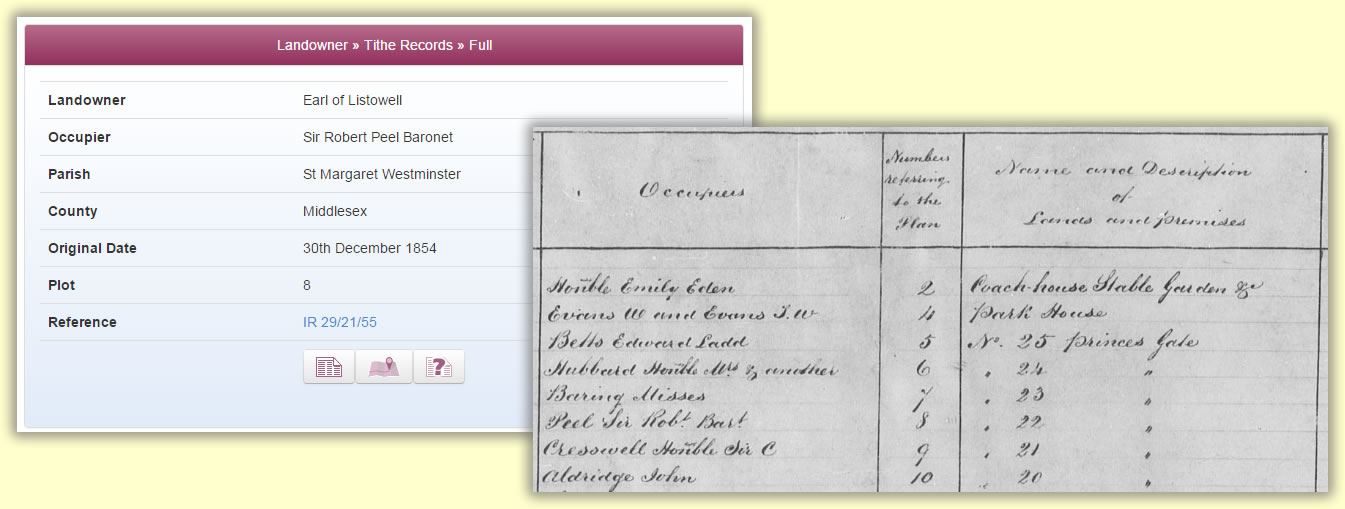 Landowner » Tithe Records » Full
Landowner Earl of Listowell
Occupier Sir Robert Peel Baronet
Parish St Margaret Westminster
County Middlesex
Original Date 30th December 1854
Plot 8
Reference IR 29/21/55
Occupiers
Numbers
referring
to the
Plan
Name and Description
of
Lands and premises
Honble Emily Eden 2 Coach-house Stable Garden &c
Evans W and Evans T. W 4 Park House
Betts Edward Ladd 5 No. 25 Princes Gate
Hubbard Honble Mrs & another 6 " 24 "
Baring Misses 7 " 23 "
Peel Sir Robt Bart 8 " 22 "
Cresswell Honble Sir C 9 " 21 "
Aldridge John 10 " 20 "